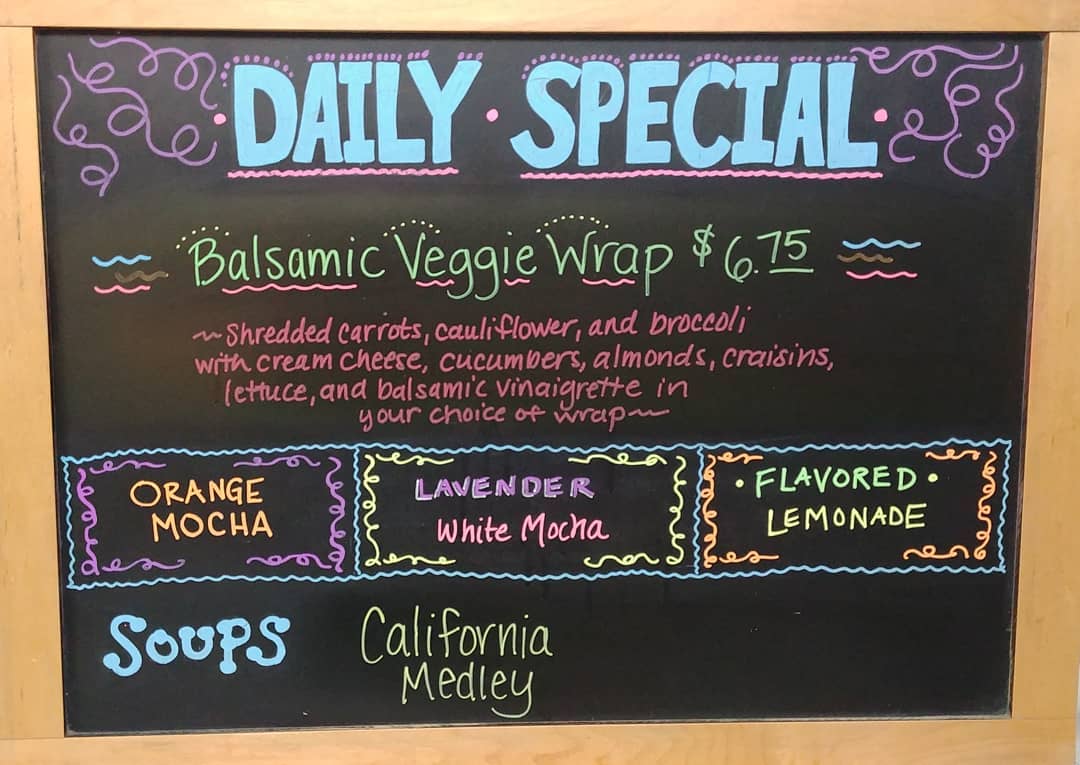 DAILY · SPECIAL ·
Balsamic Veggie Wrap $6.75
~Shredded carrots, cauliflower, and broccoli
with cream cheese, cucumbers, almonds, craisins,
lettuce, and balsamic vinaigrette in
your choice of wrap~
ORANGE
MOCHA
LAVENDER
White Mocha
· FLAVORED ·
LEMONADE
SOUPS
California
Medley